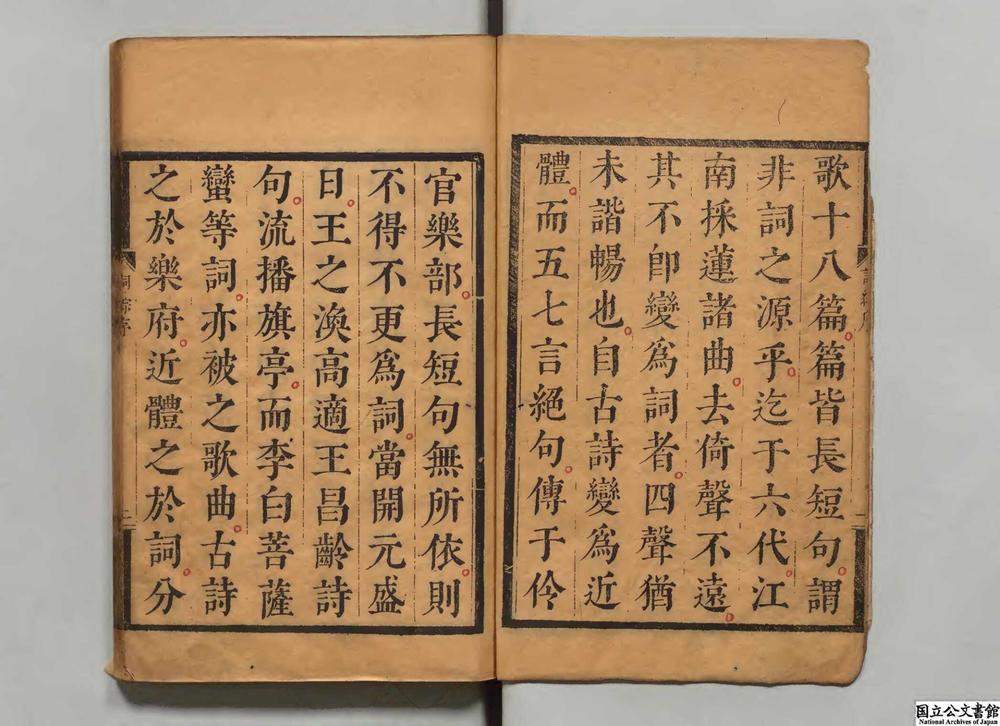 歌十八篇篇皆長短句謂
非詞之源乎迄于六代江
南採蓮諸曲去倚聲不遠
其不卽變爲詞者四聲猶
未諧暢也自古詩變爲近
體而五七言絕句傳于伶
官樂部長短句無所依則
不得不更爲詞當開元盛
日王之渙高適王昌齡詩
句流播旗亭而李白菩薩
蠻等詞亦被之歌曲古詩
之於樂府近體之於詞分
詞綜序
二
国立公文書館
National Archives of Japan